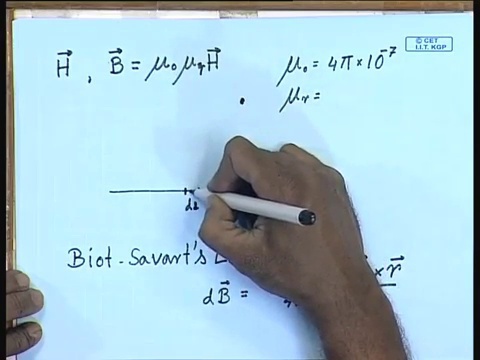 © CET
I.I.T. KGP
H⃗ , B⃗ = μ₀ μᵣ H⃗
μ₀ = 4π × 10⁻⁷
μᵣ =
Biot-Savart's
× r⃗
dB⃗ =